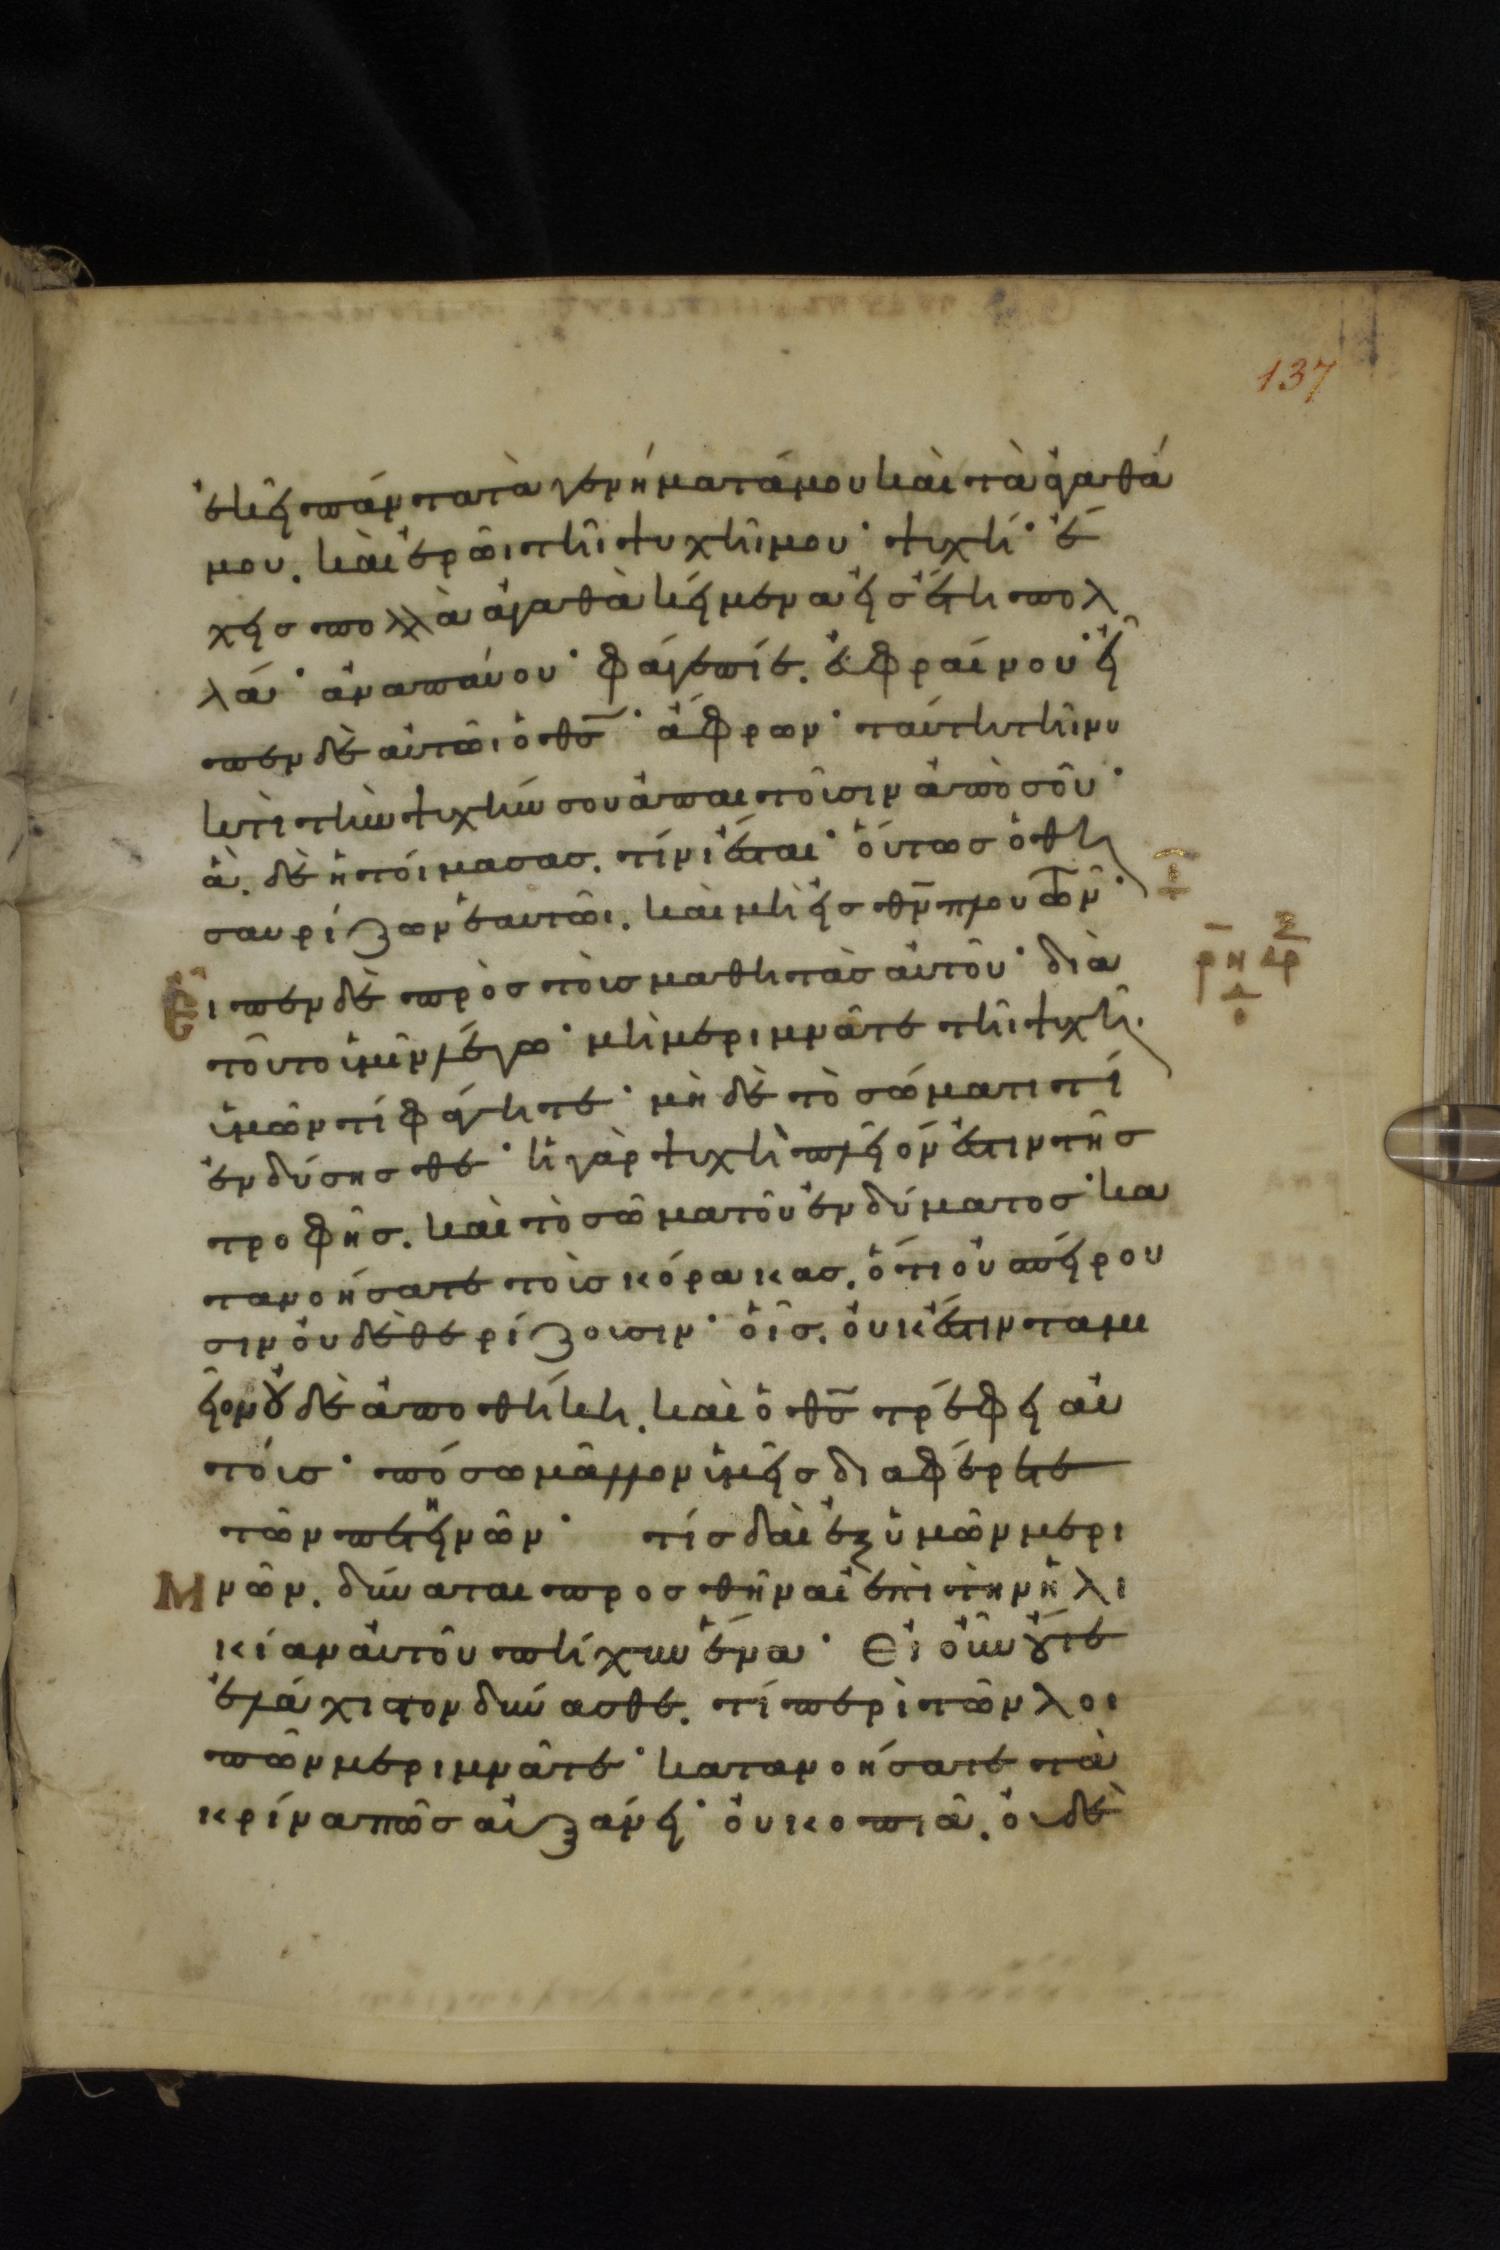 137
ἐκεῖ πάντα τὰ γενήματά μου καὶ τὰ ἀγαθά
μου. καὶ ἐρῶι τῆι ψυχῆι μου· ψυχή· ἔ
χεις πολλὰ ἀγαθὰ κείμενα εἰς ἔτη πολ
λά· ἀναπαύου· φάγε πίε. εὐφραίνου· εἶ
πεν δὲ αὐτῶι ὁ θς· ἄφρων· ταύτη τῆι νυ
κτὶ τὴν ψυχήν σου ἀπαιτοῦσιν ἀπὸ σοῦ·
ἃ. δὲ ἡτοίμασας. τίνι ἔσται· οὕτως ὁ θη
σαυρίζων ἑαυτῶι. καὶ μὴ εἰς θν πλουτῶν·
Εἶπεν δὲ πρὸς τοὺς μαθητὰς αὐτοῦ· διὰ
τοῦτο ὑμῖν λέγω· μὴ μεριμνᾶτε τῆι ψυχῆι
ὑμῶν τί φάγητε· μὴ δὲ τὸ σώματι τί
ἐνδύσησθε· ἡ γὰρ ψυχὴ πλεῖόν ἐστιν τῆς
τροφῆς. καὶ τὸ σῶμα τοῦ ἐνδύματος· κα
τανοήσατε τοὺς κόρακας. ὅτι οὐ σπείρου
σιν οὐδὲ θερίζουσιν· οἷς. οὐκ ἔστιν ταμι
εῖον οὐδὲ ἀποθήκη. καὶ ὁ θς τρέφει αὐ
τούς· πόσω μᾶλλον ὑμεῖς διαφέρετε
τῶν πετεινῶν· τίς δαὶ ἐξ ὑμῶν μερι
Μνῶν. δύναται προσθῆναι ἐπὶ τὴν ἡλι
κίαν αὐτοῦ πῆχυν ἕνα· Εἰ οὖν οὔτε
ἐλάχιστον δύνασθε. τί περὶ τῶν λοι
πῶν μεριμνᾶτε· κατανοήσατε τὰ
κρίνα πῶς αὐξάνει· οὐ κοπιᾶ. οὐδὲ